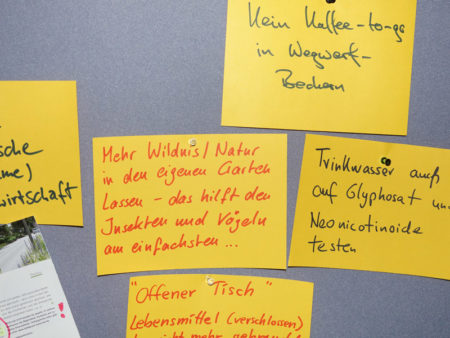 Kein Kaffee-to-go
in Wegwerf-
Bechern
sche
me)
wirtschaft
Mehr Wildnis/Natur
in den eigenen Garten
Lassen - das hilft den
Insekten und Vögeln
am einfachsten ...
Trinkwasser auch
auf Glyphosat und
Neonicotinoide
testen
"Offener Tisch"
Lebensmittel (verschlossen)